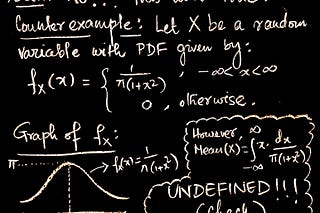 Counterexample: Let X be a random
variable with PDF given by:
fₓ(x) = { 1/π(1+x²) , -∞<x<∞
0, otherwise.
Graph of fₓ:
π
fₓ(x) = 1/π(1+x²)
However,
Mean(X) = ∫ x. dx/π(1+x²)
∞
-∞
UNDEFINED!!!
(check